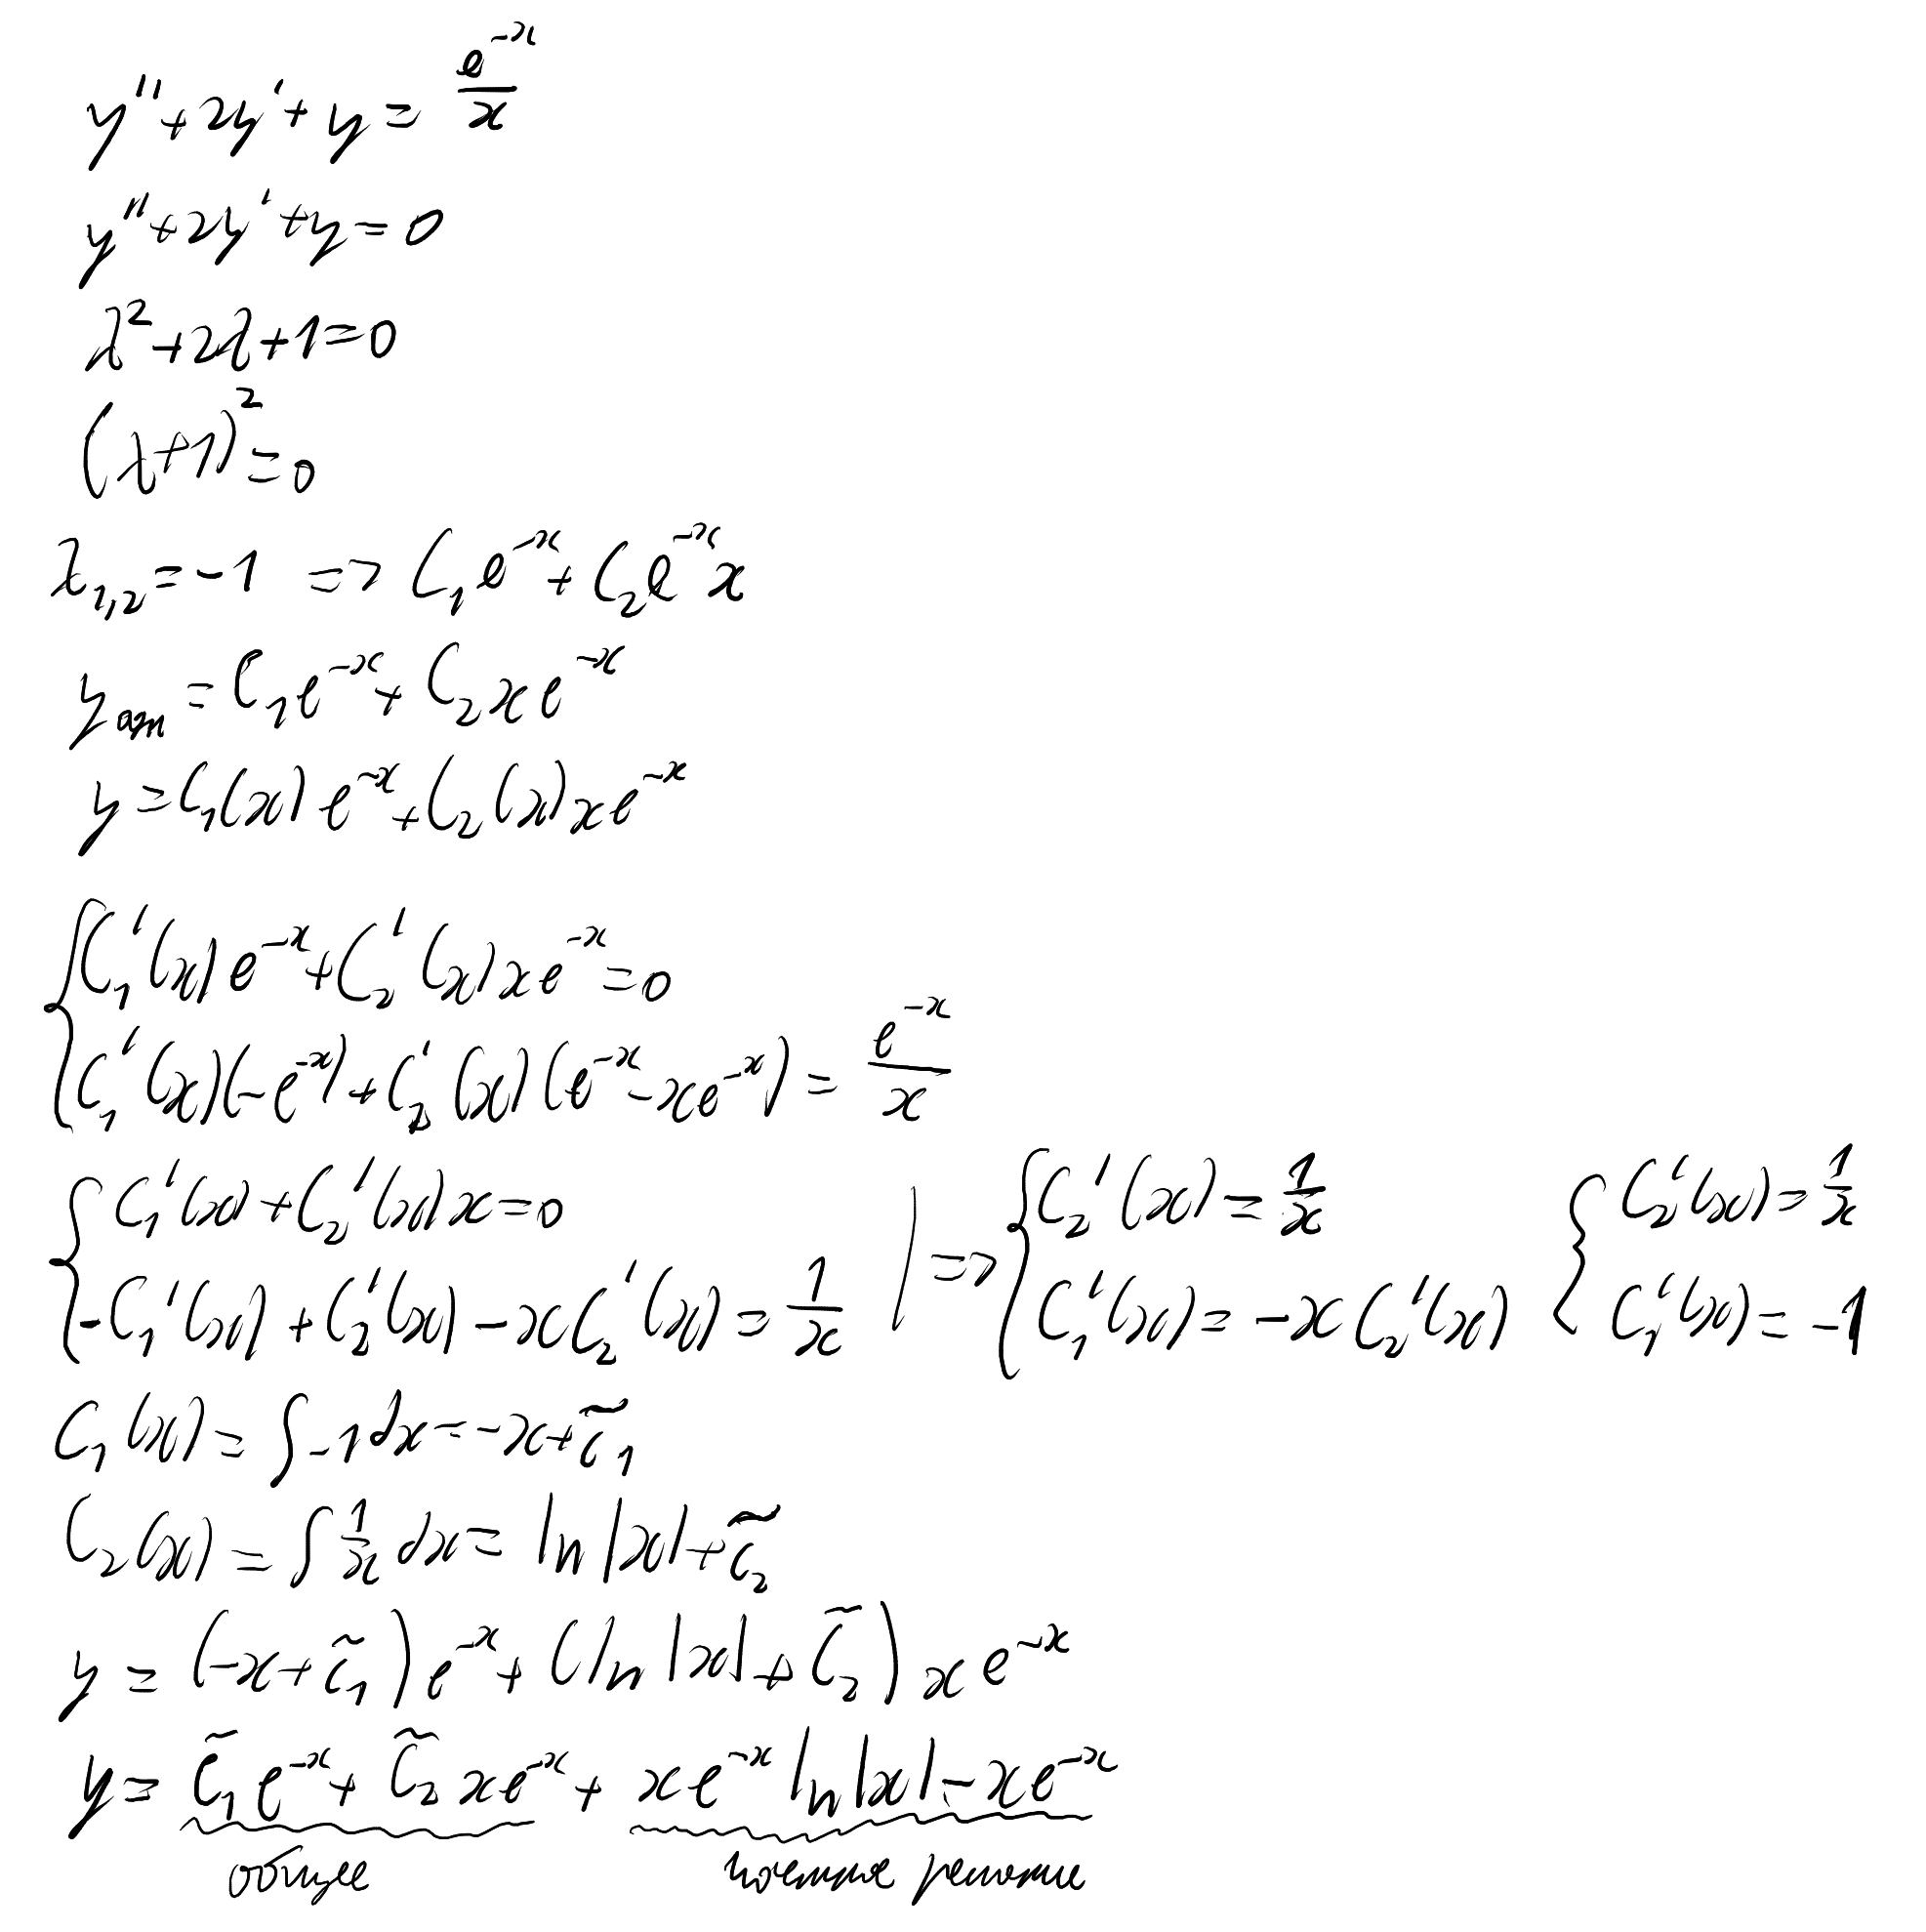 y'' + 2y' + y = e^{-x}/x
y'' + 2y' + y = 0
λ² + 2λ + 1 = 0
(λ+1)² = 0
λ_{1,2} = -1 => C₁e^{-x} + C₂e^{-x}x
y = C₁e^{-x} + C₂xe^{-x}
y = C₁(x)e^{-x} + C₂(x)xe^{-x}
{ C₁'(x)e^{-x} + C₂'(x)xe^{-x} = 0
C₁'(x)(-e^{-x}) + C₂'(x)(e^{-x} - xe^{-x}) = e^{-x}/x
{ C₁'(x) + C₂'(x)x = 0 | => { C₂'(x) = 1/x { C₂'(x) = 1/x
-C₁'(x) + C₂'(x) - xC₂'(x) = 1/x C₁'(x) = -xC₂'(x) C₁'(x) = -1
C₁(x) = ∫-1dx = -x + C̃₁
C₂(x) = ∫1/x dx = ln|x| + C̃₂
y = (-x + C̃₁)e^{-x} + (ln|x| + C̃₂)xe^{-x}
y = C̃₁e^{-x} + C̃₂xe^{-x} + xe^{-x}ln|x| - xe^{-x}
общее частное решение